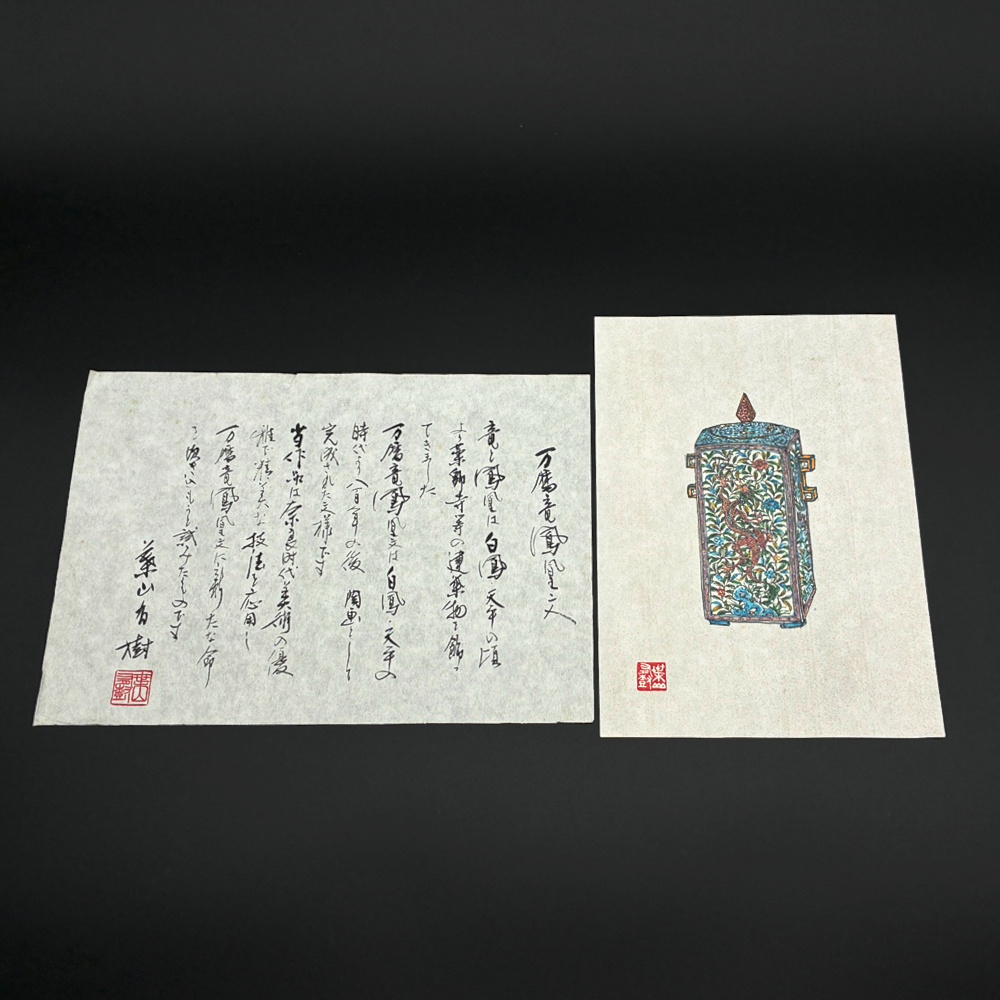 万暦竜鳳凰文
竜と鳳凰は白鳳天平の頃
より薬師寺等の建築物を飾っ
てきました
万暦竜鳳凰文は白鳳・天平の
時代より八百年の後 陶画として
完成された文様です
当作品は奈良時代美術の優
雅で精美な技法を応用し
万暦竜鳳凰文に新たな命
を
試みたものです
葉山有樹
葉山有樹
葉山有樹